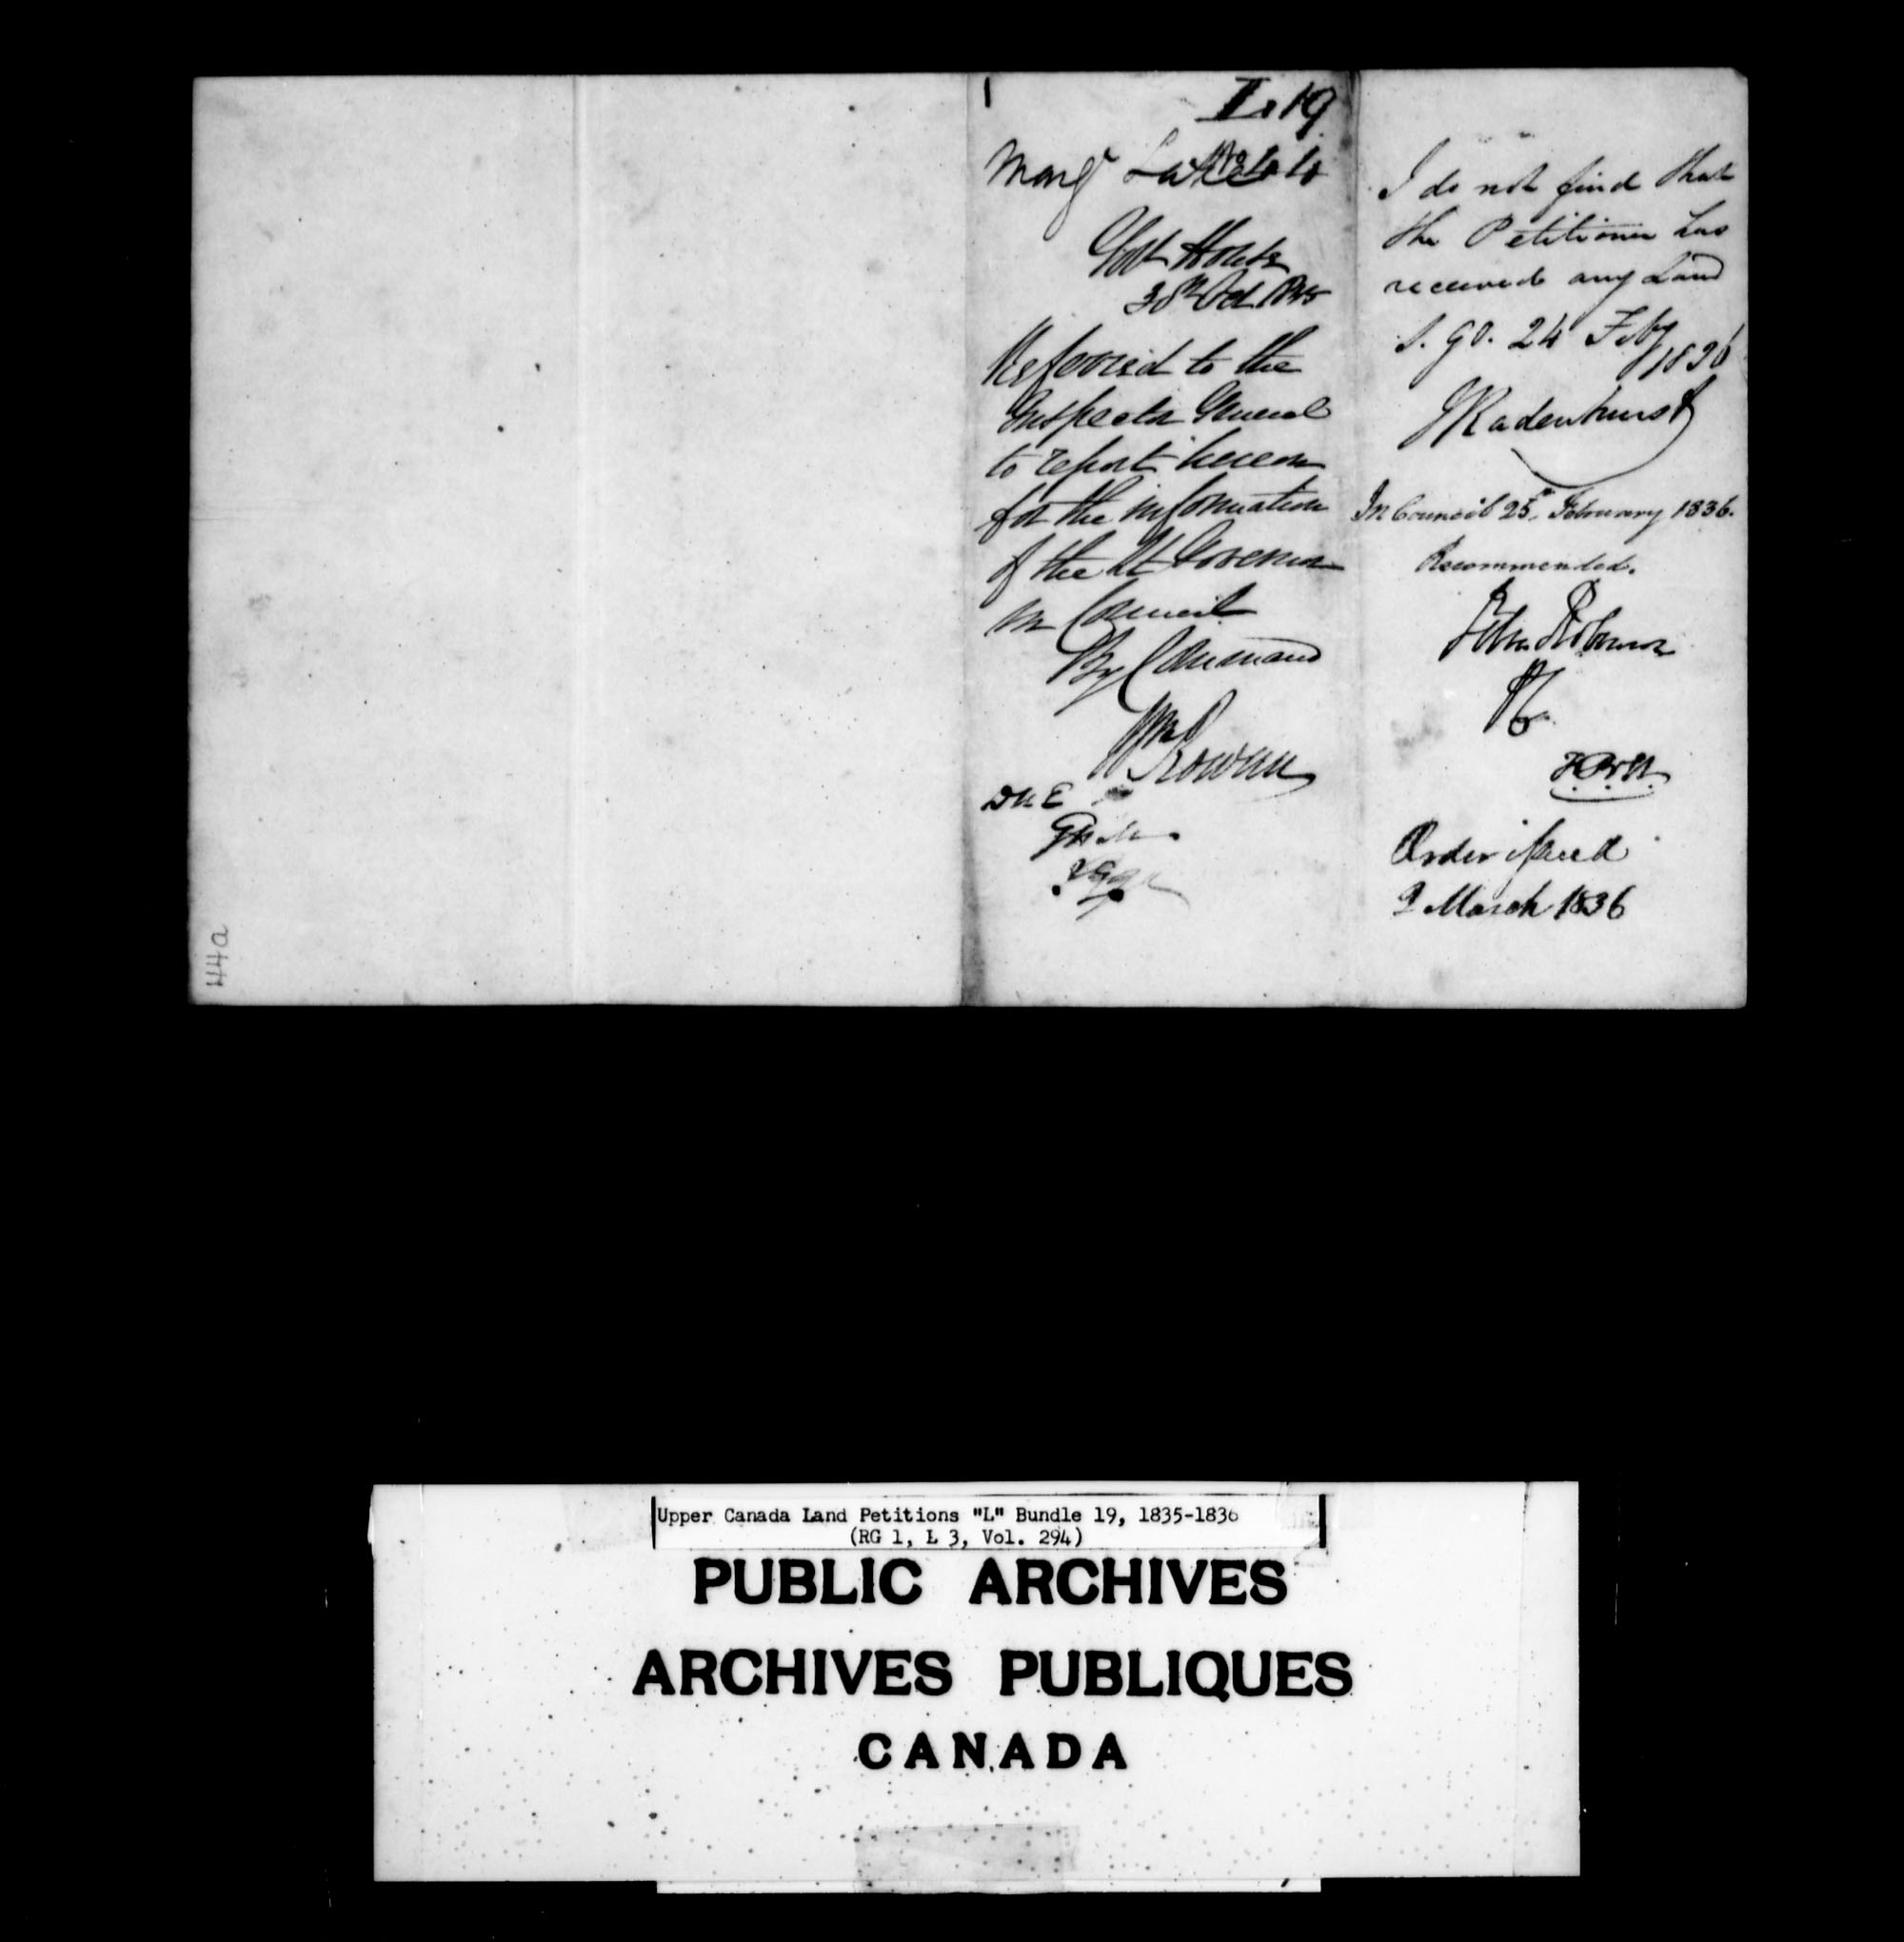 L. 19
No 44
Marg^t
Gov^t House
Oct 1835
Referred to the
Inspector General
to report hereon
for the information
of the Lt Governor
in Council
By Command
Wm Rowan
I do not find that
the Petitioner has
received any Land
S. G. O. 24 Feby
1836
JRadenhurst
In Council 25, February 1836.
Recommended.
Order issued
2 March 1836
44a
Upper Canada Land Petitions "L" Bundle 19, 1835-1836
(RG 1, L 3, Vol. 294)
PUBLIC ARCHIVES
ARCHIVES PUBLIQUES
CANADA